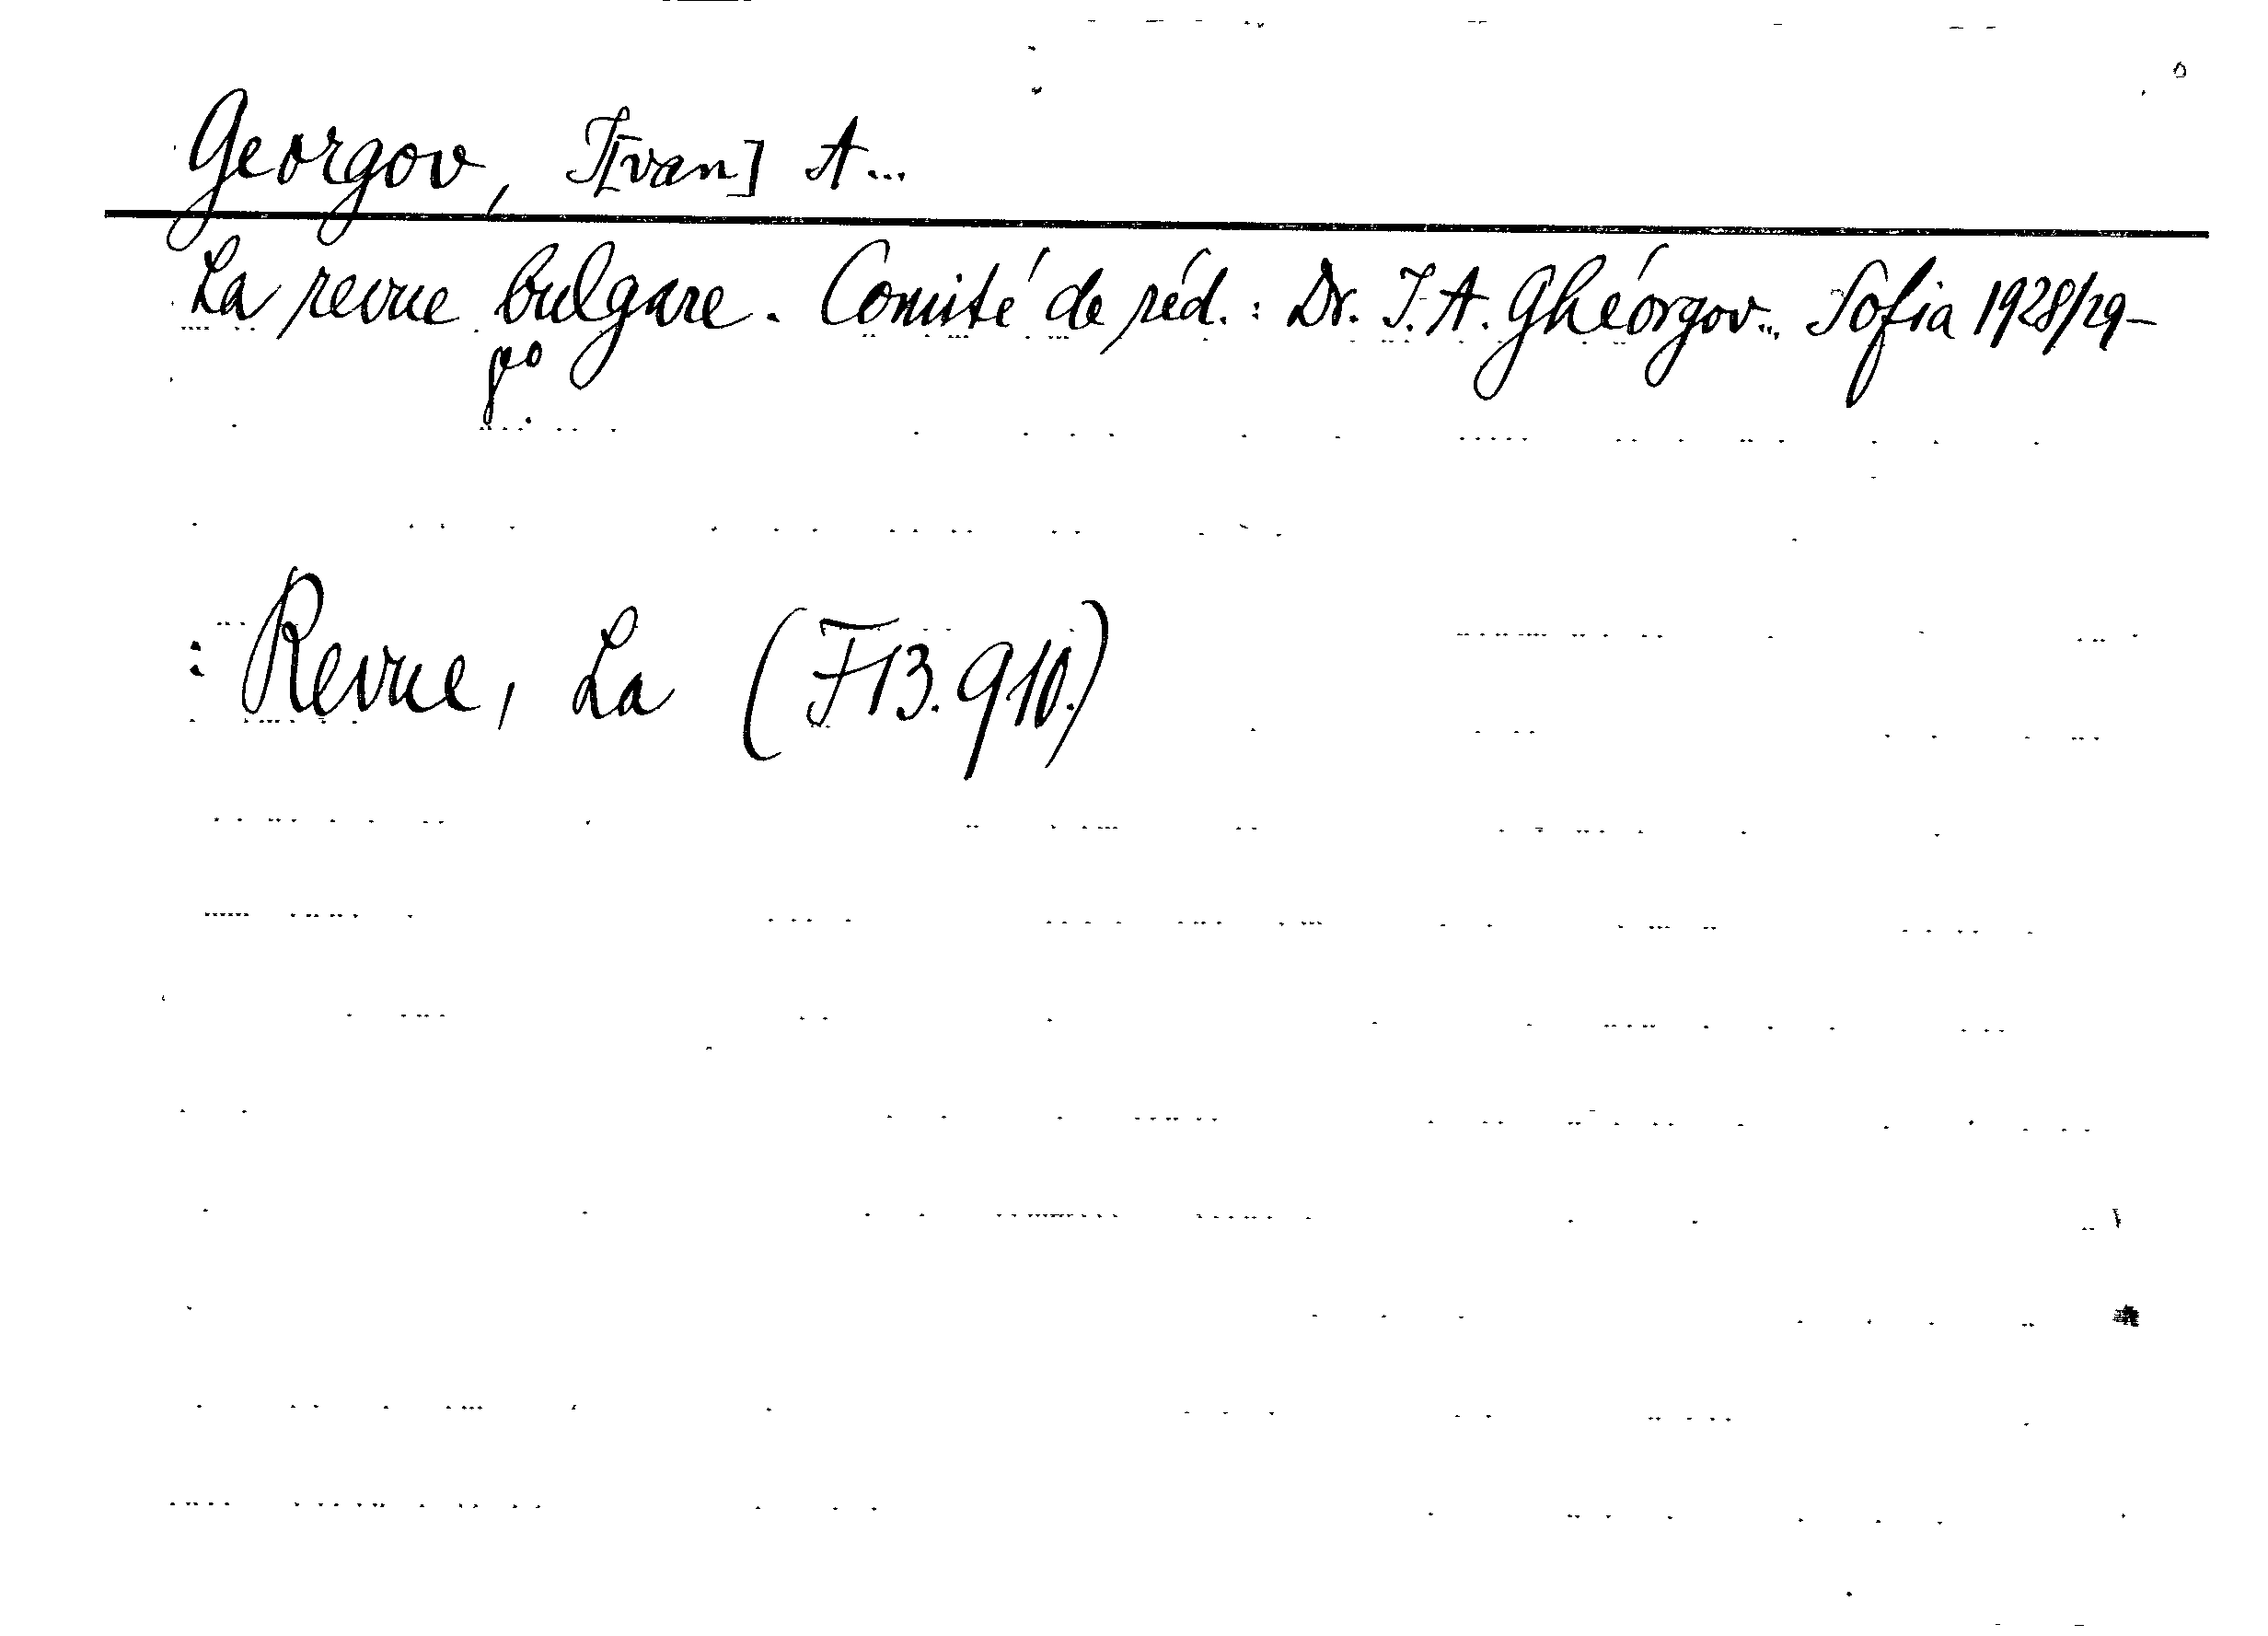 Georgov, I[van] A...
La revue bulgare. Comité de réd.: Dr. I. A. Ghéorgov... Sofia 1928/29-
8°.
: Revue, La (F 13.910.)